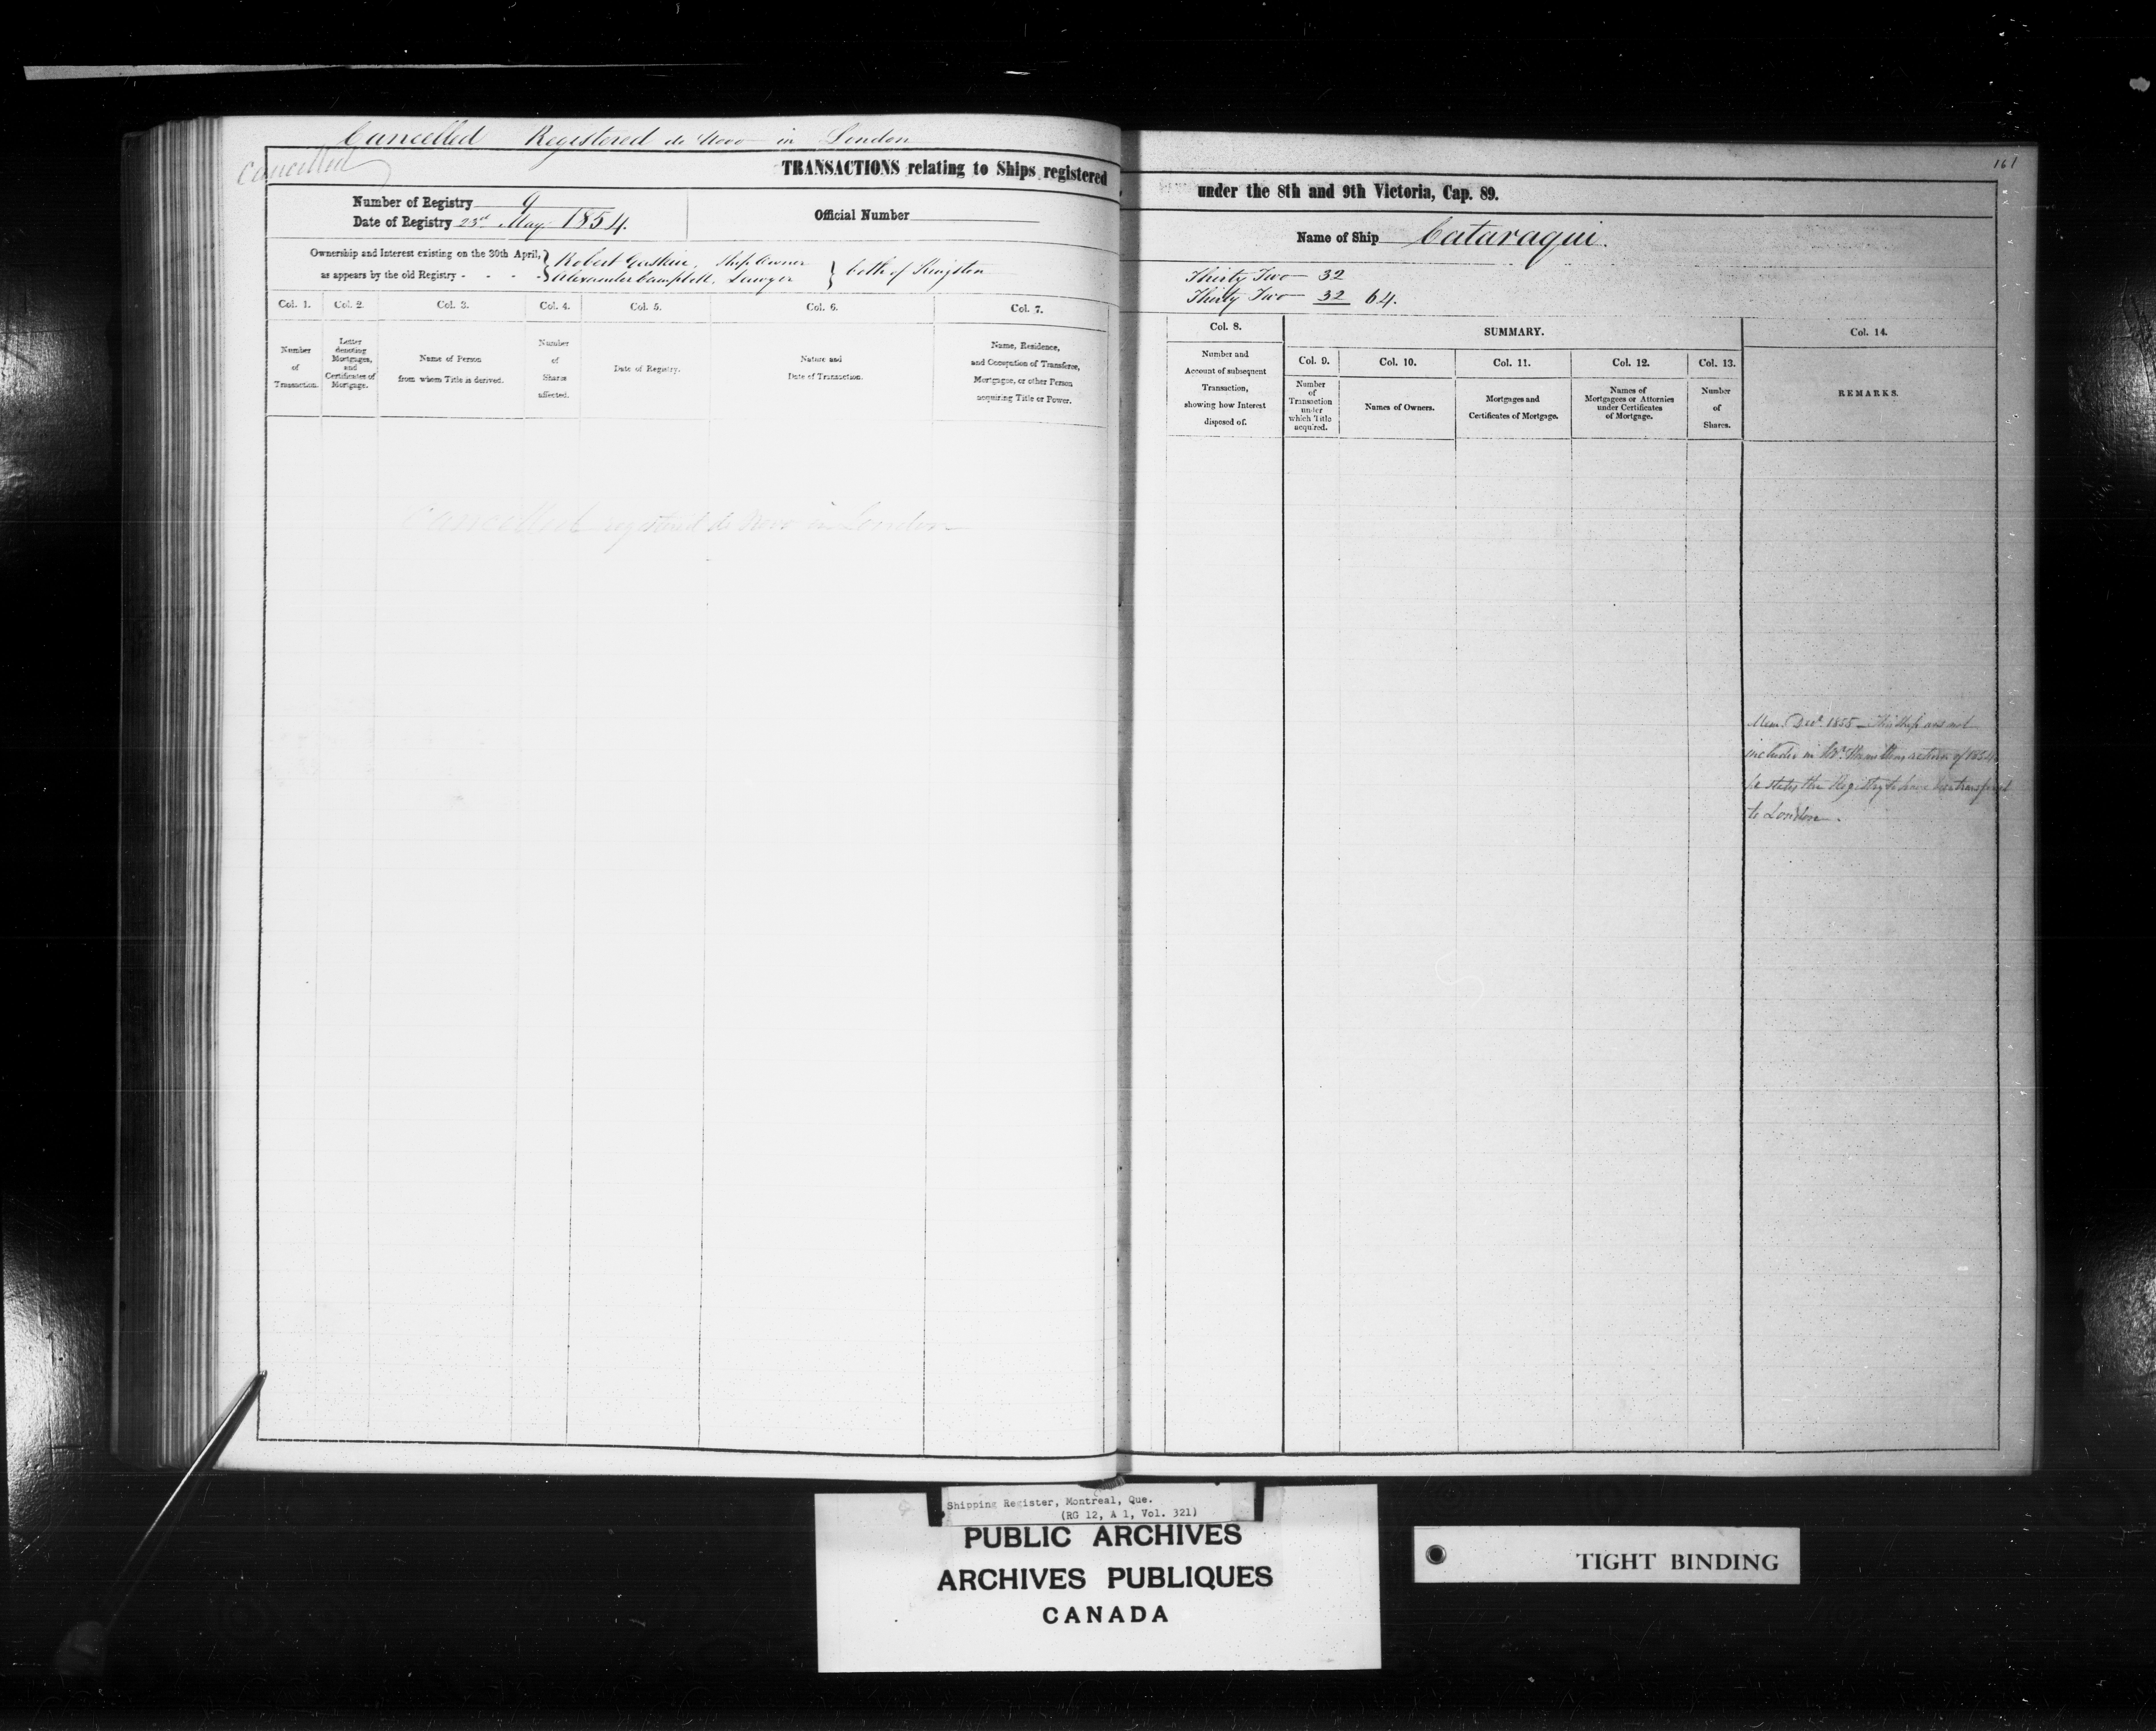 Cancelled Registered de Novo in London
Cancelled
161
TRANSACTIONS relating to Ships registered under the 8th and 9th Victoria, Cap. 89.
Number of Registry 9
Date of Registry 23rd May 1854.
Official Number
Name of Ship Cataraqui.
Ownership and Interest existing on the 30th April,
as appears by the old Registry - - - -
Robert Gaskin, Ship Owner
Alexander Campbell, Lawyer
both of Kingston
Thirty Two 32
Thirty Two 32 64.
Col. 1. Col. 2. Col. 3. Col. 4. Col. 5. Col. 6. Col. 7.
Number
of
Transaction.
Letter
denoting
Mortgages,
and
Certificates of
Mortgage.
Name of Person
from whom Title is derived.
Number
of
Shares
affected.
Date of Registry.
Nature and
Date of Transaction.
Name, Residence,
and Occupation of Transferee,
Mortgagee, or other Person
acquiring Title or Power.
Col. 8.
Number and
Account of subsequent
Transaction,
showing how Interest
disposed of.
SUMMARY.
Col. 9. Col. 10. Col. 11. Col. 12. Col. 13.
Number
of
Transaction
under
which Title
acquired.
Names of Owners.
Mortgages and
Certificates of Mortgage.
Names of
Mortgagees or Attornies
under Certificates
of Mortgage.
Number
of
Shares.
Col. 14.
REMARKS.
Cancelled registered de Novo in London
Mem. Decr. 1855 - This Ship was not
included in Mr. Hamilton's return of 1854
he states the Registry to have been transferred
to London.
Shipping Register, Montreal, Que.
(RG 12, A 1, Vol. 321)
PUBLIC ARCHIVES
ARCHIVES PUBLIQUES
CANADA
TIGHT BINDING